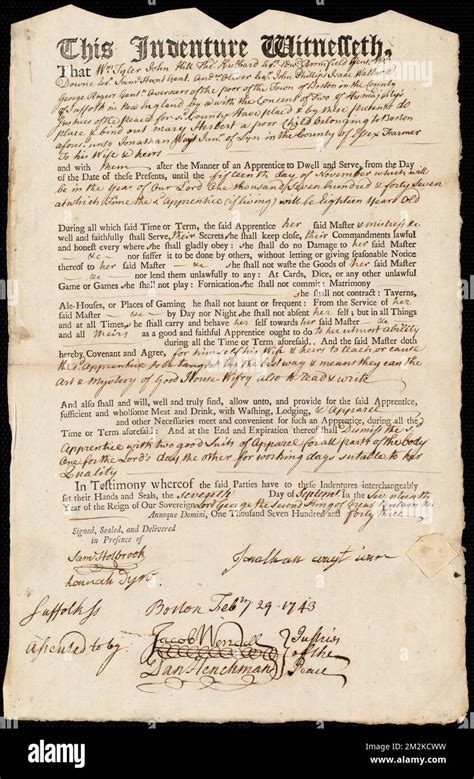 This Indenture Witnesseth,
That Wm Tyler John Hill Thos Hubbard Esqrs Edwd Bromfield Gent Wm
Downe Esqr Saml Hunt Gent Andw Oliver Esqr John Phillips Isaac Walker &
George Rogers Gent Overseers of the poor of the Town of Boston in the County
of Suffolk in New England by & with the Consent of Two of His Majestys
Justices of the Peace for sd County Have placed & by these presents do
place & bind out mary Herbert a poor Child belonging to Boston
aforesd unto Jonathan Wayt Junr of Lyn in the County of Essex Farmer
To his Wife & heirs
and with them after the Manner of an Apprentice to Dwell and Serve, from the Day
of the Date of these Presents, until the fifteenth day of November which will
be in the Year of Our Lord One thousand Seven hundred & forty Seven
at which time the sd Apprentice (if living) will be Eighteen Years Old
During all which said Time or Term, the said Apprentice her said Master & mistress &c
well and faithfully shall Serve, their Secrets she shall keep close, their Commandments lawful
and honest every where she shall gladly obey: she shall do no Damage to her said Master
&c nor suffer it to be done by others, without letting or giving seasonable Notice
thereof to her said Master &c she shall not waste the Goods of her said Master
&c nor lend them unlawfully to any: At Cards, Dice, or any other unlawful
Game or Games she shall not play: Fornication she shall not commit: Matrimony
she shall not contract: Taverns,
Ale-Houses, or Places of Gaming she shall not haunt or frequent: From the Service of her
said Master &c by Day nor Night she shall not absent her self; but in all Things
and at all Times, she shall carry and behave her self towards her said Master &c
and all theirs as a good and faithful Apprentice ought to do to her utmost ability
during all the Time or Term aforesaid. And the said Master doth
hereby Covenant and Agree, for himself his Wife & heirs to teach or cause
the sd Apprentice to be taught by the best way & means they can the
Art & Mystery of Good House-Wifry also to read & write
And also shall and will, well and truly find, allow unto, and provide for the said Apprentice,
sufficient and wholsome Meat and Drink, with Washing, Lodging, & Apparel
and other Necessaries meet and convenient for such an Apprentice, during all the
Time or Term aforesaid: And at the End and Expiration thereof shall Dismiss the sd
Apprentice with two good Suits of Apparel for all parts of the body
One for the Lord's day the other for working days suitable to her
Quality
In Testimony whereof the said Parties to these Indentures interchangeably
set their Hands and Seals, the seventh Day of Septemr In the Seventeenth
Year of the Reign of Our Sovereign Lord George the Second King of Great Britain &c
Annoque Domini, One Thousand Seven Hundred and forty three
Signed, Sealed, and Delivered
in Presence of
Saml Holbrook
hannah Dyer
Jonathan wayt iuner
Suffolk ss Boston Febry 29. 1743
Assented to by Jacob Wendell } Justices
Dan Henchman } of the
Peace
alamy
Image ID: 2MZKCWW
www.alamy.com